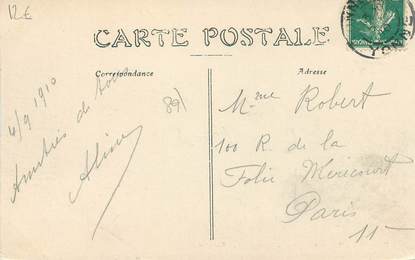 12€
CARTE POSTALE
Correspondance
Adresse
4/9 1910
Amitiés de tous
Aline
89)
Mme Robert
100 R. de la
Folie Méricourt
Paris
11